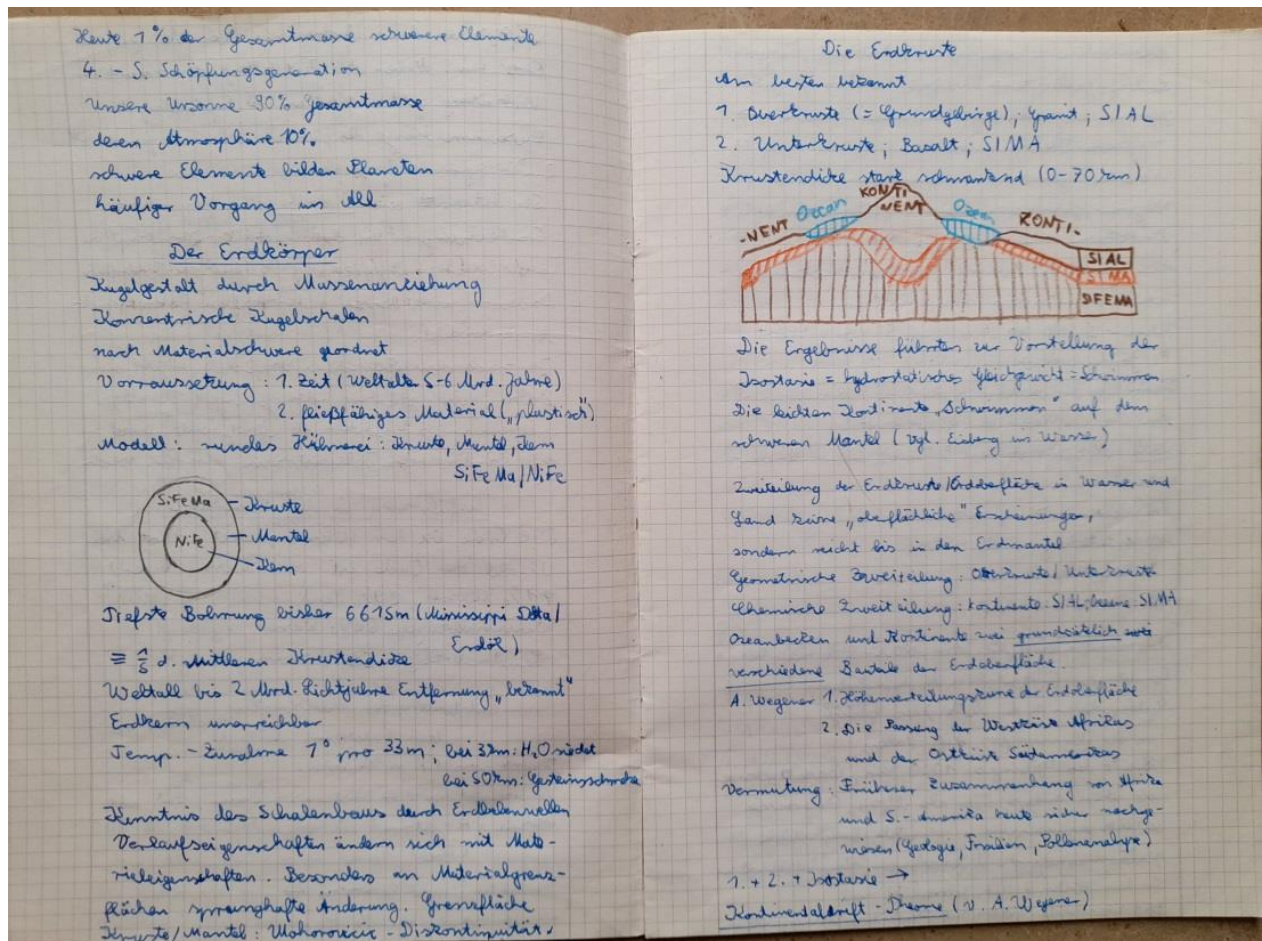 Heute 1% der Gesamtmasse schwerere Elemente
4. - 5. Schöpfungsgeneration
Unsere Ursonne 90% Gesamtmasse
deren Atmosphäre 10%
schwere Elemente bilden Planeten
häufiger Vorgang im All
Der Erdkörper
Kugelgestalt durch Massenanziehung
Konzentrische Kugelschalen
nach Materialschwere geordnet
Vorraussetzung : 1. Zeit (Weltalter 5-6 Mrd. Jahre)
2. fließfähiges Material („plastisch")
Modell : rundes Hühnerei : Kruste, Mantel, Kern
SiFeMa/NiFe
SiFeMa
Kruste
NiFe
Mantel
Kern
Tiefste Bohrung bisher 6615m (Missisippi Delta/
Erdöl)
≡ 1/5 d. Mittleren Krustendicke
Weltall bis 2 Mrd. Lichtjahre Entfernung „bekannt"
Erdkern unerreichbar
Temp. - Zunahme 1° pro 33m ; bei 3km: H₂O siedet
bei 50km: Gesteinsschmelze
Kenntnis des Schalenbaus durch Erdbebenwellen
Verlaufseigenschaften ändern sich mit Mate-
rialeigenschaften. Besonders an Materialgrenz-
flächen sprunghafte Änderung. Grenzfläche
Kruste/Mantel : Mohorovicic - Diskontinuität.
Die Erdkruste
Am besten bekannt
1. Oberkruste (= Grundgebirge) ; Granit ; SIAL
2. Unterkruste ; Basalt ; SIMA
Krustendicke stark schwankend (0-70 km)
-NENT
Ozean
KONTI
NENT
Ozean
KONTI-
SIAL
SIMA
DFEMA
Die Ergebnisse führten zur Vorstellung der
Isostasie = hydrostatisches Gleichgewicht = Schwimmen
Die leichten Kontinente „Schwimmen" auf dem
schweren Mantel (vgl. Eisberg im Wasser)
Zweiteilung der Erdkruste/Erdoberfläche in Wasser und
Land keine „oberflächliche" Erscheinungen,
sondern reicht bis in den Erdmantel
Geometrische Zweiteilung : Oberkruste/Unterkruste
Chemische Zweiteilung : Kontinente SIAL, SIMA
Ozeanbecken und Kontinente zwei grundsätzlich
verschiedene Bauteile der Erdoberfläche.
A. Wegener 1. Höhenverteilungskurve der Erdoberfläche
2. Die Passung der Westküste Afrikas
und der Ostküste Südamerikas
Vermutung : Früherer Zusammenhang von Afrika
und S.- Amerika heute sicher nachge-
wiesen (Geologie, Fossilien, Pollenanalyse)
1. + 2. + Isostasie →
Kontinentaldrift - Theorie (v. A. Wegener)